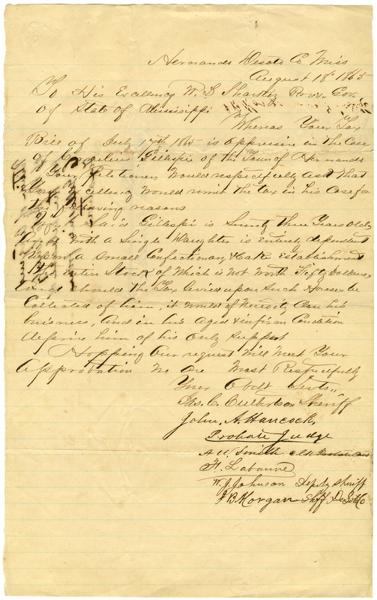 Hernando Desoto Co Miss
August 18th 1865
To His Excellency W. L. Sharkey Prov. Gov.
of State of Mississippi
Whereas Your Tax
Bill of July 17th 1865 is oppressive in the case
of Gillespie of the Town of Hernando
Your Petitioners would respectfully ask that
Your Excellency would remit the tax in his case for
the following reasons
Said Gillespie is Seventy three Years old
with a Single Daughter is entirely dependent
upon a Small Confectionary & Cake Establishment
entire Stock of which is not worth Fifty Dollars,
and should the Tax levied upon such Houses be
Collected of him, it would of necessity close his
business, and in his aged & infirm condition
deprive him of his only support
Hopping our request will meet Your
Approbation we are most Respectfully
Your Obt Servts
Jas. C. Culbertson Sheriff
John. A. Hancock,
Probate Judge
A. W. Smith
F. Labauve
W. J. Johnson Deputy Sheriff
J B Morgan Shff DeSoto